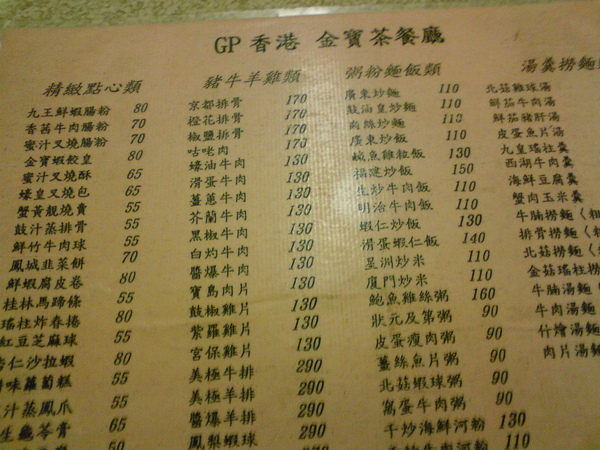 GP 香港 金寶茶餐廳
精緻點心類
九王鮮蝦腸粉 80
香茜牛肉腸粉 70
蜜汁叉燒腸粉 70
金寶蝦餃皇 80
蜜汁叉燒酥 65
蠔皇叉燒包 65
蟹黃靚燒賣 55
豉汁蒸排骨 55
鮮竹牛肉球 55
鳳城韭菜餅 70
鮮蝦腐皮卷 80
桂林馬蹄條 55
瑤柱炸春捲 80
紅豆芝麻球 55
仁沙拉蝦 80
味蘿蔔糕 55
汁蒸鳳爪 55
生龜苓膏 65
50
豬牛羊雞類
京都排骨 170
橙花排骨 170
椒鹽排骨 170
咕咾肉 170
蠔油牛肉 130
滑蛋牛肉 130
薑蔥牛肉 130
芥蘭牛肉 130
黑椒牛肉 130
白灼牛肉 130
醬爆牛肉 130
寶島肉片 130
鼓椒雞片 130
紫羅雞片 130
宮保雞片 130
美極牛排 290
美極羊排 290
醬爆羊排 290
鳳梨蝦球 290
粥粉麵飯類
廣東炒麵 110
豉油皇炒麵 110
肉絲炒麵 110
廣東炒飯 110
鹹魚雞粒飯 130
福建炒飯 150
生炒牛肉飯 110
明治牛肉飯 110
蝦仁炒飯 130
滑蛋蝦仁飯 140
星洲炒米 110
廈門炒米 110
鮑魚雞絲粥 160
狀元及第粥 90
皮蛋瘦肉粥 90
薑絲魚片粥 90
北菇蝦球粥 90
窩蛋牛肉粥 90
干炒海鮮河粉 130
干炒牛肉河粉 110
湯羹撈麵
北菇雞球湯
鮮茄牛肉湯
鮮茄豬肝湯
皮蛋魚片湯
九皇瑤柱羹
西湖牛肉羹
海鮮豆腐羹
蟹肉玉米羹
牛腩撈麵
排骨撈麵
北菇撈麵
金菇瑤柱撈
牛腩湯麵
牛肉湯麵
什燴湯麵
肉片湯麵